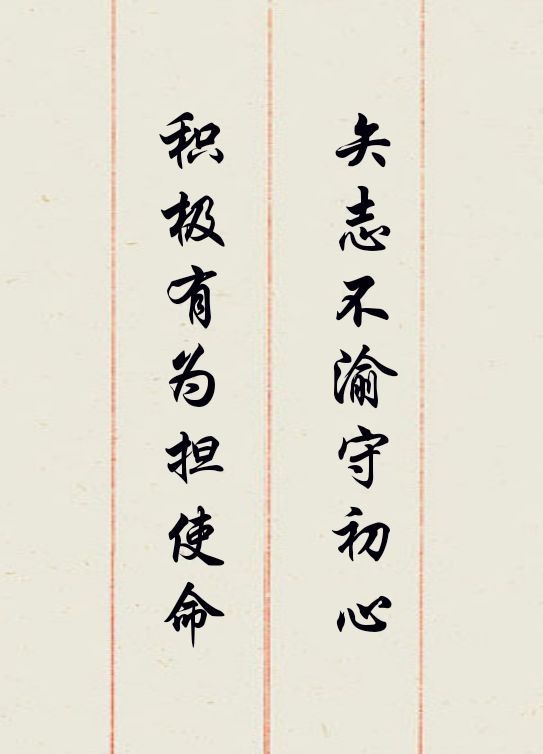 矢志不渝守初心
积极有为担使命